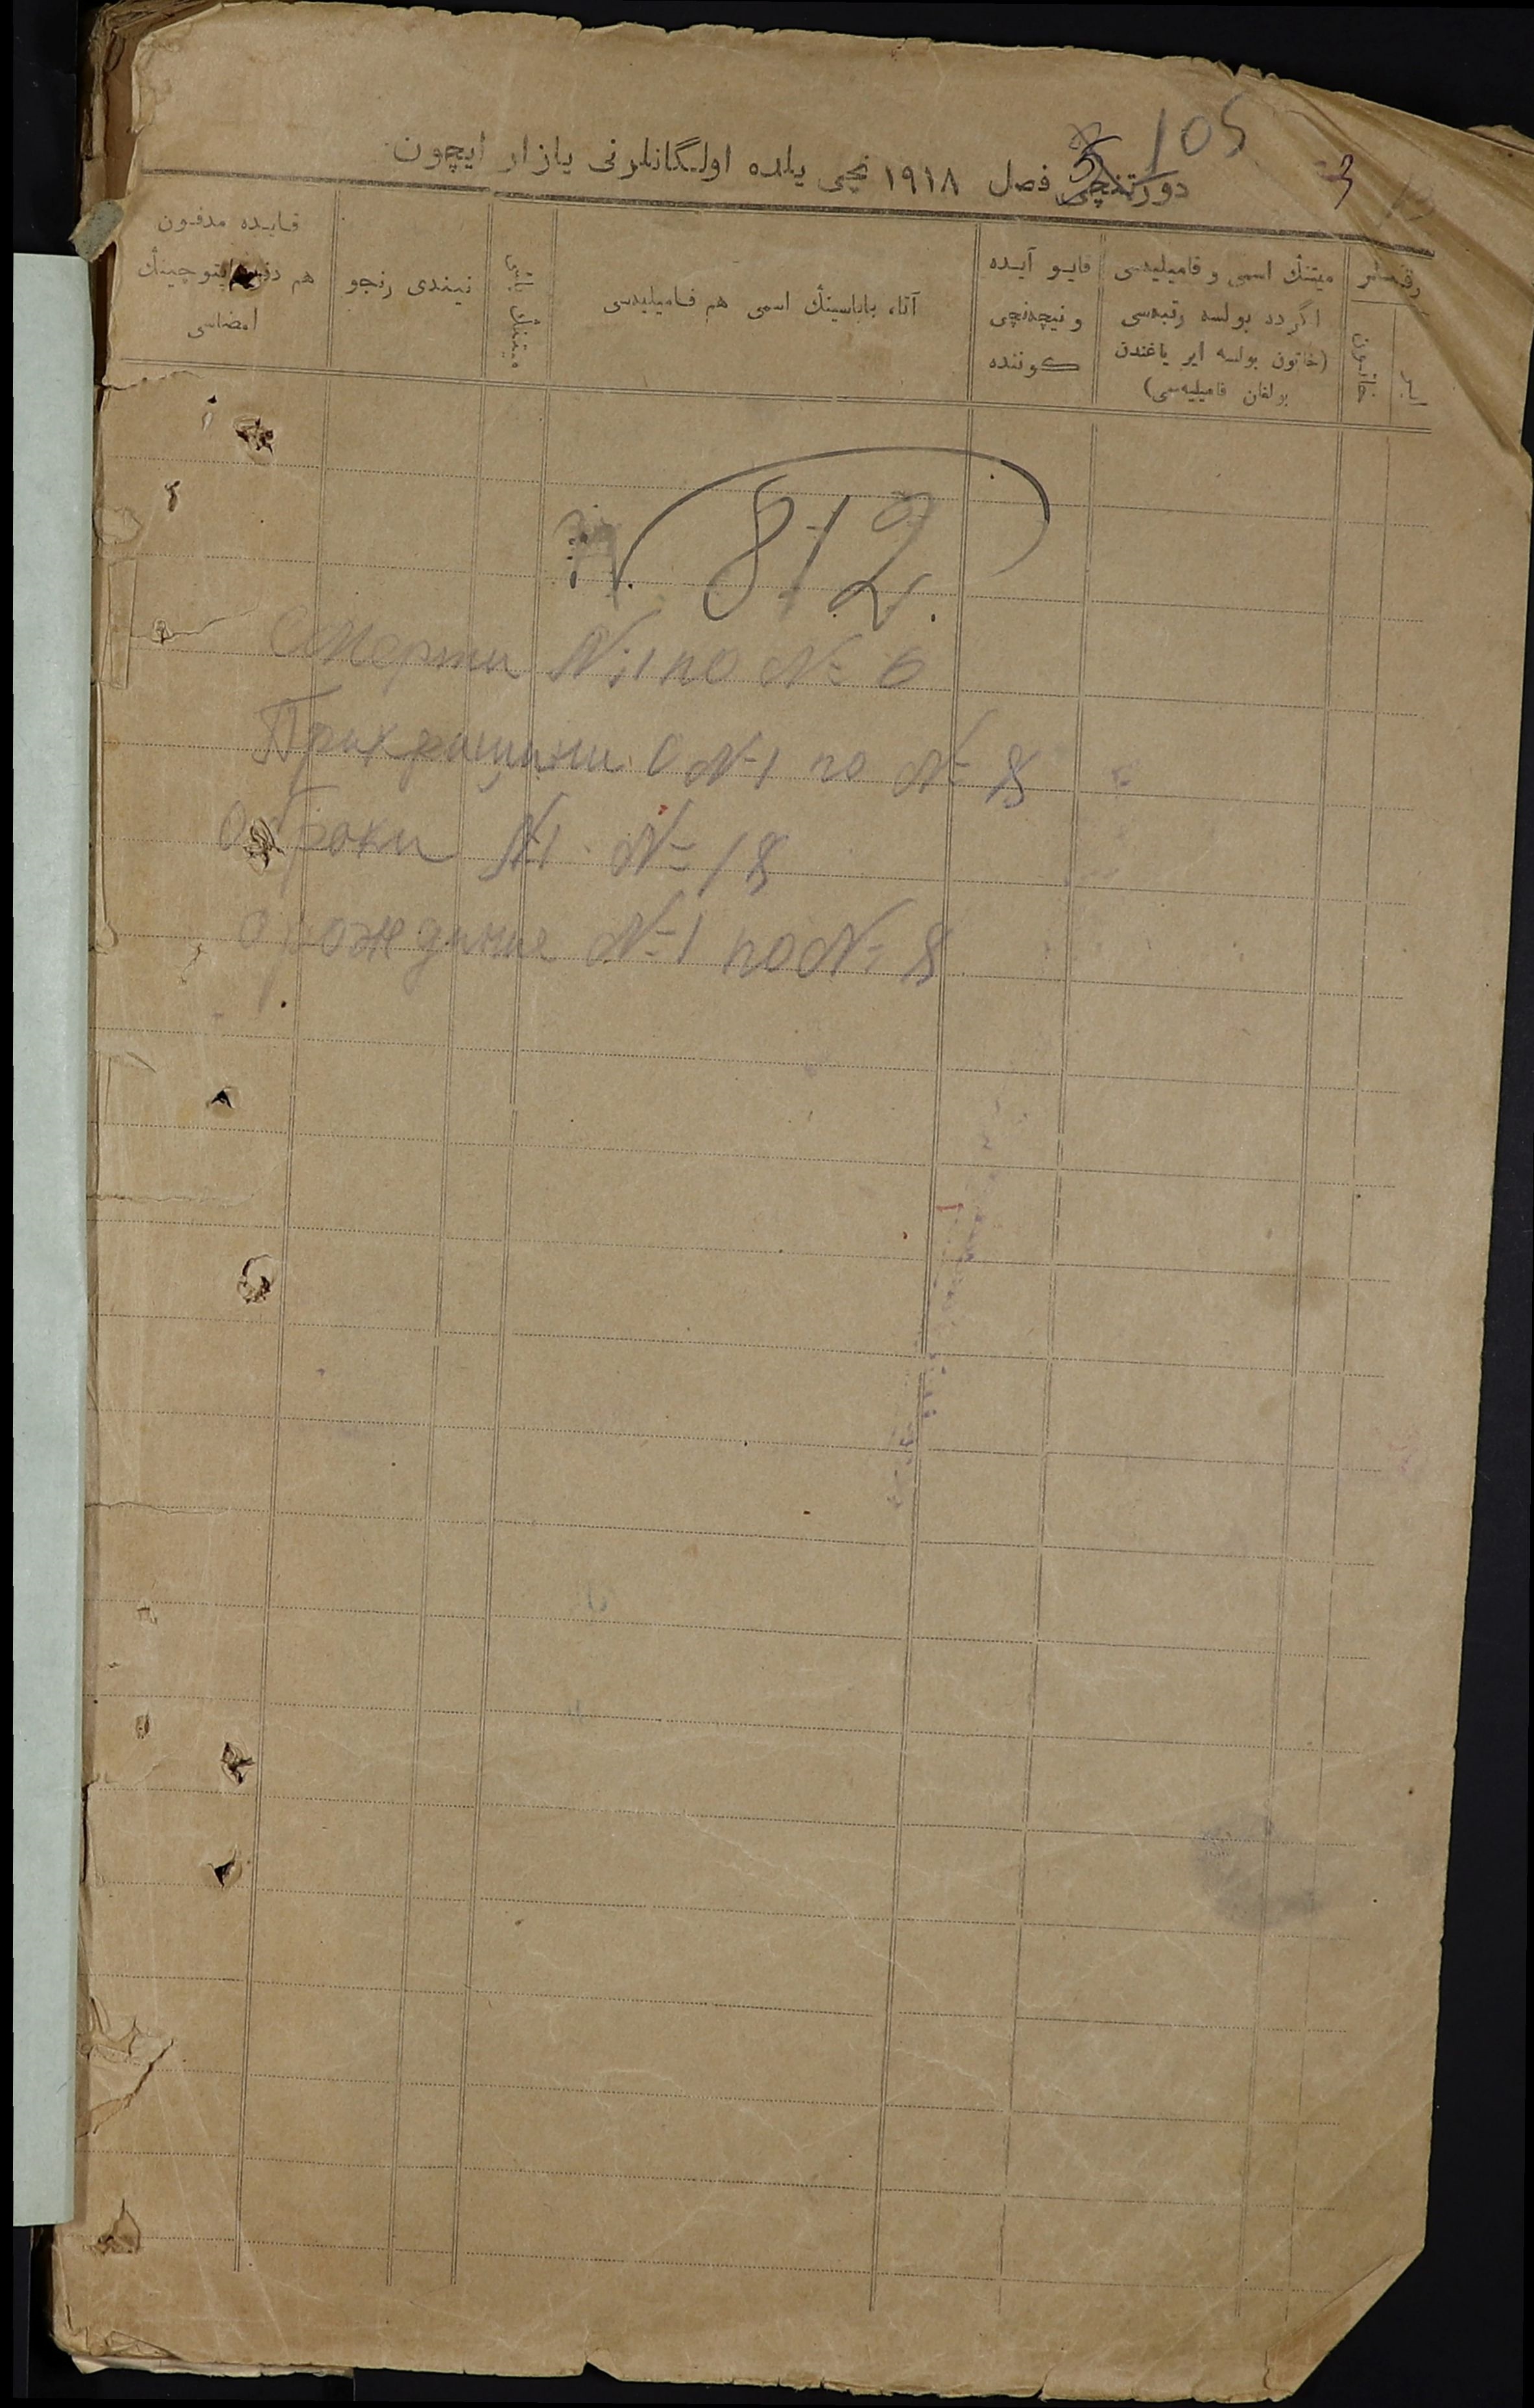 105
3
دورتنچی فصل ۱۹۱۸ نچی یلده اولگانلرنی یازار ایچون
رقملر
ایر
خاتون
میتنڭ اسمی و فامیلیه‌سی
اگرده بولسه رتبه‌سی
(خاتون بولسه ایر یاغندن
بولغان فامیلیه‌سی)
قایو آیده
و نیچه‌نچی
کوننده
آتا، باباسینڭ اسمی هم فامیلیه‌سی
میتنڭ یاشی
نیندی رنجو
قایده مدفون
هم دفن ایتوچینڭ
امضاسی
N. 812.
Смерти №1 по № 6
Прикращини С №1 по № 18
О броки №1 № 18
О рождении №1 по № 8